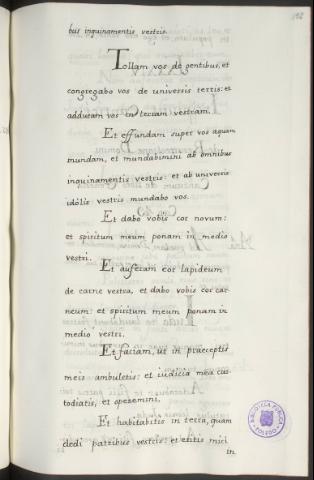 bus inquinamentis vestris.
Tollam vos de gentibus, et
congregabo vos de universis terris: et
adducam vos in terram vestram.
Et effundam super vos aquam
mundam, et mundabimini ab omnibus
inquinamentis vestris: et ab universis
idolis vestris mundabo vos.
Et dabo vobis cor novum:
et spiritum meum ponam in medio
vestri.
Et auferam cor lapideum
de carne vestra, et dabo vobis cor car-
neum: et spiritum meum ponam in
medio vestri.
Et faciam, ut in praeceptis
meis ambuletis: et iudicia mea cus-
todiatis, et operemini.
Et habitabitis in terra, quam
dedi patribus vestris: et eritis mici
in